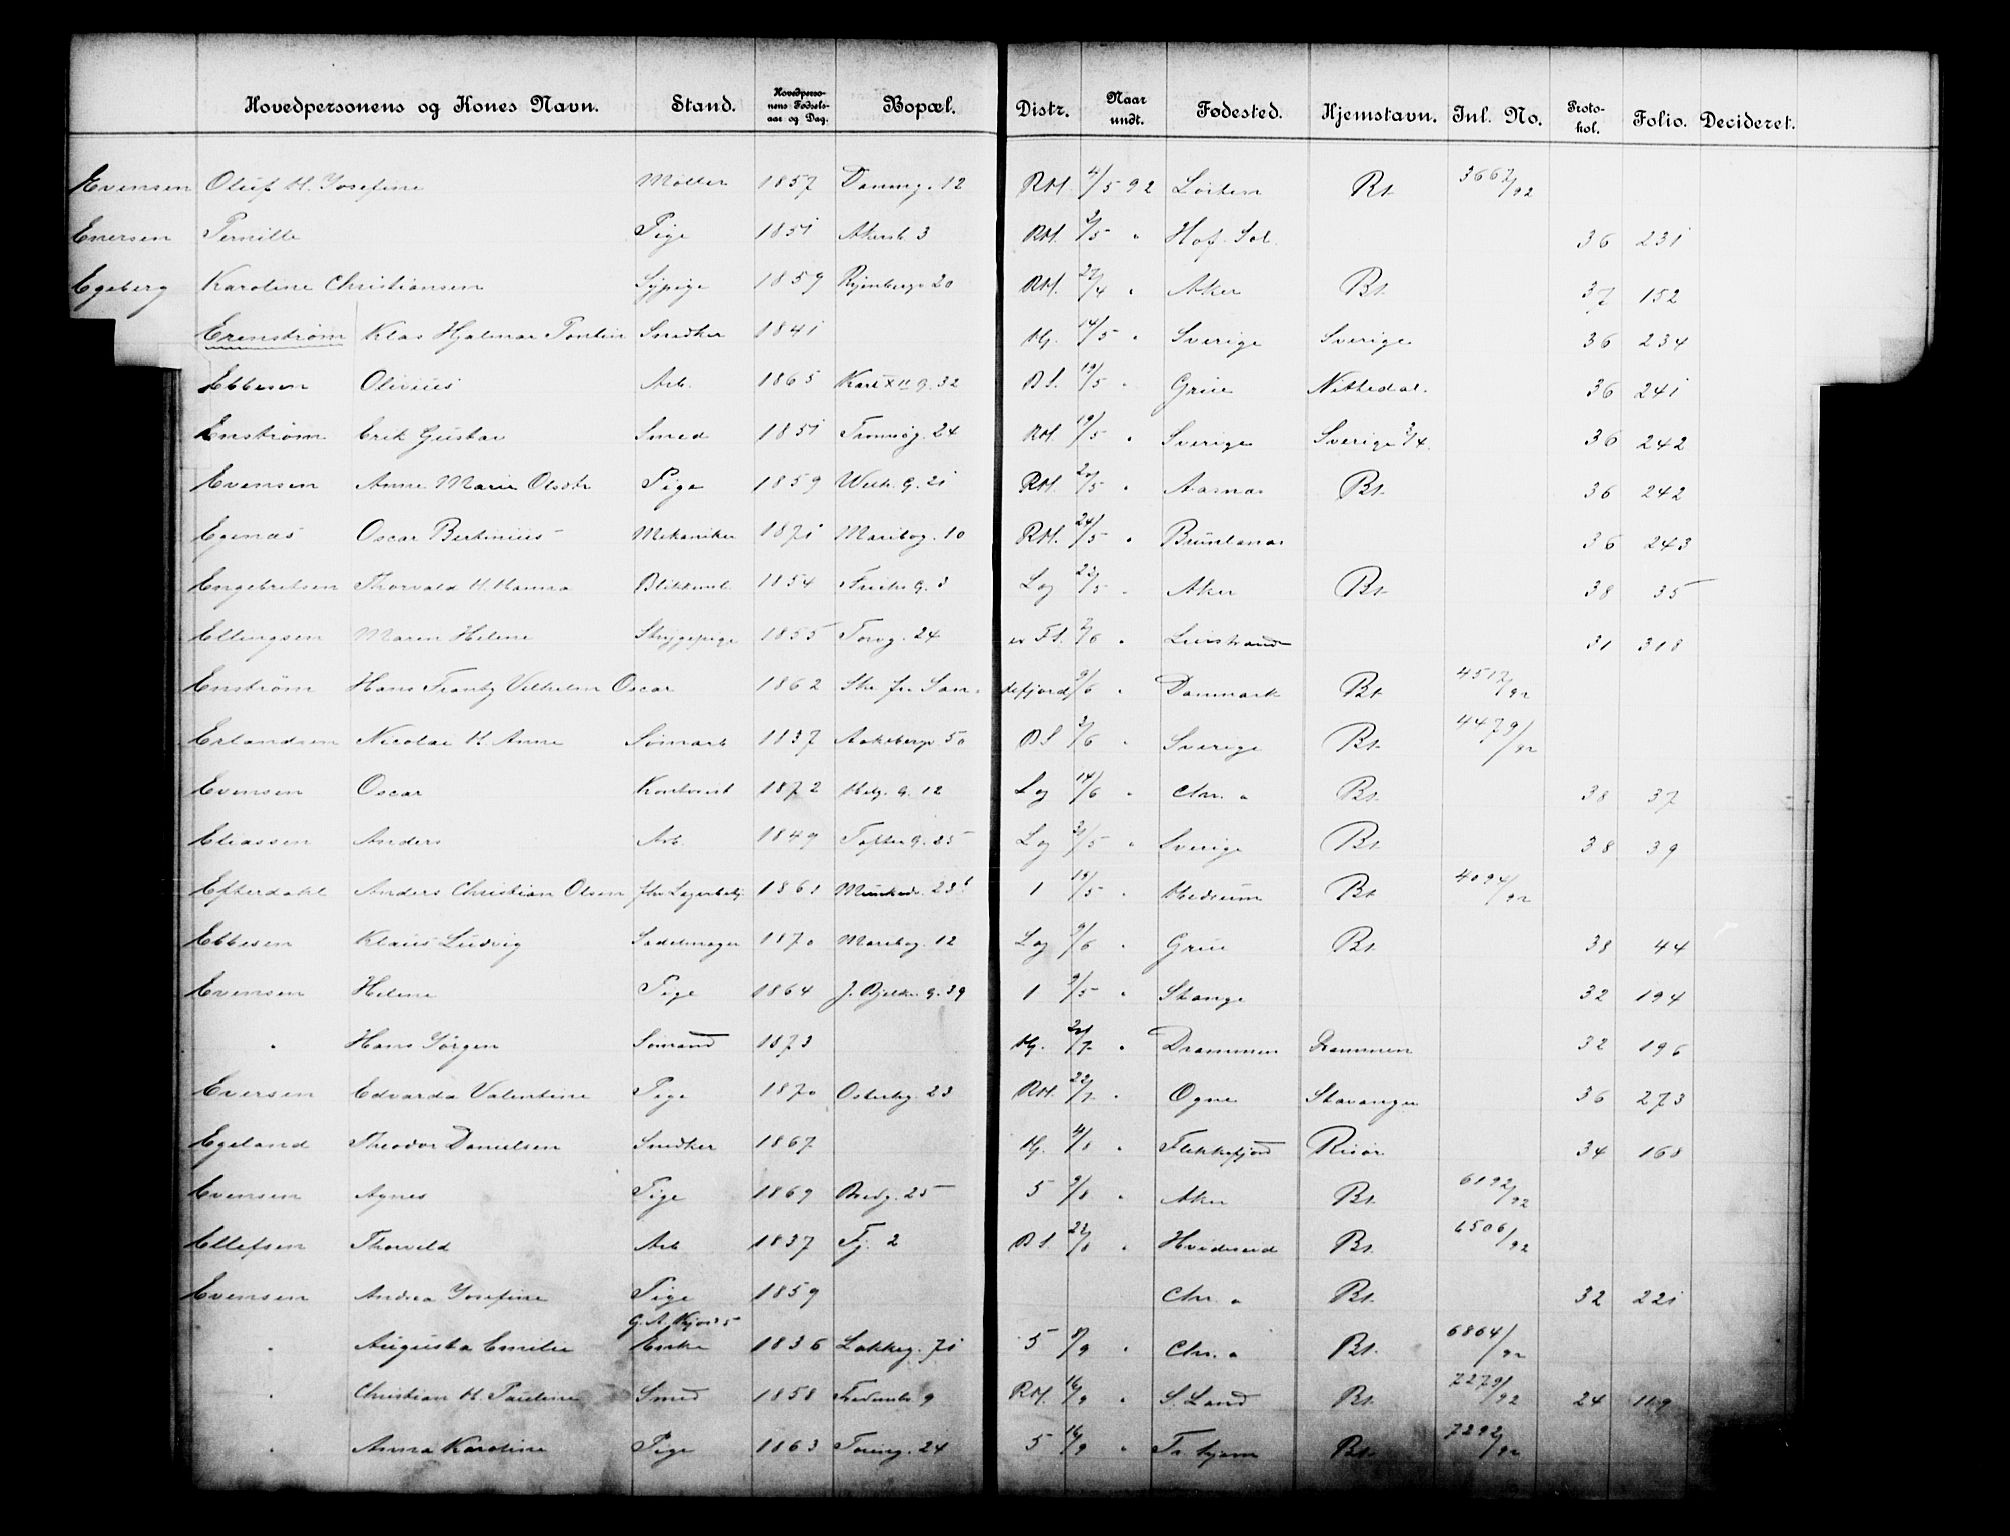 Hovedpersonens og Kones Navn. Stand. Hovedperso-nens Fødsels-aar og Dag. Bopæl. Distr. Naar undt. Fødested. Hjemstavn. Inl. No. Proto-kol. Folio. Decideret.
Evensen Oluf H. Josefine Møller 1857 12 RH. 4/5 92 Løiten Bt. 3662/92
Enersen Pernille Pige 1851 Akersb. 3 RH. 2/5 " Hof. Sol. 36 231
Egeberg Karoline Christiansen Sypige 1859 20 RH. 27/4 " Aker Bt. 37 152
Erenstrøm Klas Hjalmar Pontin Snedker 1841 Hj. 14/5 " Sverige Sverige 36 234
Ebbesen Olivius Arb. 1865 Karl XII g. 32 BS. 19/5 " Grue Nittedal. 36 241
Enstrøm Erik Gustav Smed 1851 Tromsøg. 24 RH. 19/5 " Sverige Sverige 3/4. 36 242
Evensen Anne Marie Olsdtr Pige 1859 Welh. g. 21 RH. 20/5 " Aasnas Bt. 36 242
Egenæs Oscar Bertinius Mekaniker 1871 Maribog. 10 RH. 24/5 " Brunlanæs 36 243
Engebretsen Thorvald H. Hanna Blikkensl. 1854 g. 3 Log 23/5 " Aker Bt. 38 35
Ellingsen Maren Helene Strygepige 1855 Torvg. 24 2/6 " Lierstrand 31 318
Enstrøm Hans Frantz Vilhelm Oscar 1862 Skr. fr. San-defjord 9/6 " Danmark Bt. 4517/92
Erlandsen Nicolai H. Anne 1837 Aakebergv. 50 BS. 2/6 " Sverige Bt. 4479/92
Evensen Oscar Kontorist 1872 Helg. g. 12 Log 14/6 " Chr. a Bt. 38 37
Eliassen Anders Arb. 1849 Tofteg. 25 Log 31/5 " Sverige Bt. 38 39
Efterdahl Anders Christian Olsen 1861 Munked. 23 1 19/5 " Hedrum Bt. 4094/92
Ebbesen Klaus Ludvig Sadelmager 1870 Maribog. 12 Log 9/6 " Grue Bt. 38 44
Evensen Helene Pige 1864 J. Bjelkes g. 39 1 9/5 " Stange 32 194
" Hans Jørgen Sømand 1873 Hj. 20/7 " Drammen Drammen 32 196
Eversen Edvarda Valentine Pige 1870 Osterhg. 23 RH. 22/7 " Ogne Stavanger 36 273
Egeland Theodor Danielsen Snedker 1867 Hj. 4/8 " Flekkefjord Risør 34 168
Evensen Agnes Pige 1869 Bredg. 25 5 9/8 " Aker Bt. 6192/92
Ellefsen Thorvald Arb 1837 Fj. 2 BS. 22/8 " Hvideseid Bt. 6506/92
Evensen Andrea Josefine Pige 1859 Chr. a Bt. 32 221
" Augusta Emilie Enke 1836 Lakkeg. 71 5 8/9 " Chr. a Bt. 6864/92
" Christian H. Pauline Smed 1858 9 RH. 16/9 " S. Land Bt. 7279/92 24 119
" Anna Karoline Pige 1863 Torvg. 24 5 16/9 " Tr. hjem Bt. 7292/92